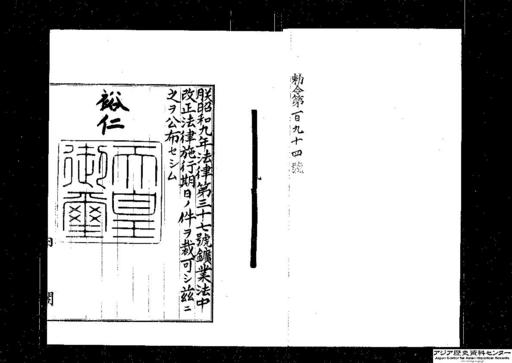 勅令第二百九十四號
朕昭和九年法律第三十七號鑛業法中
改正法律施行期日ノ件ヲ裁可シ玆ニ
之ヲ公布セシム
裕仁
天皇
御璽
内閣
アジア歴史資料センター
Japan Center for Asian Historical Records